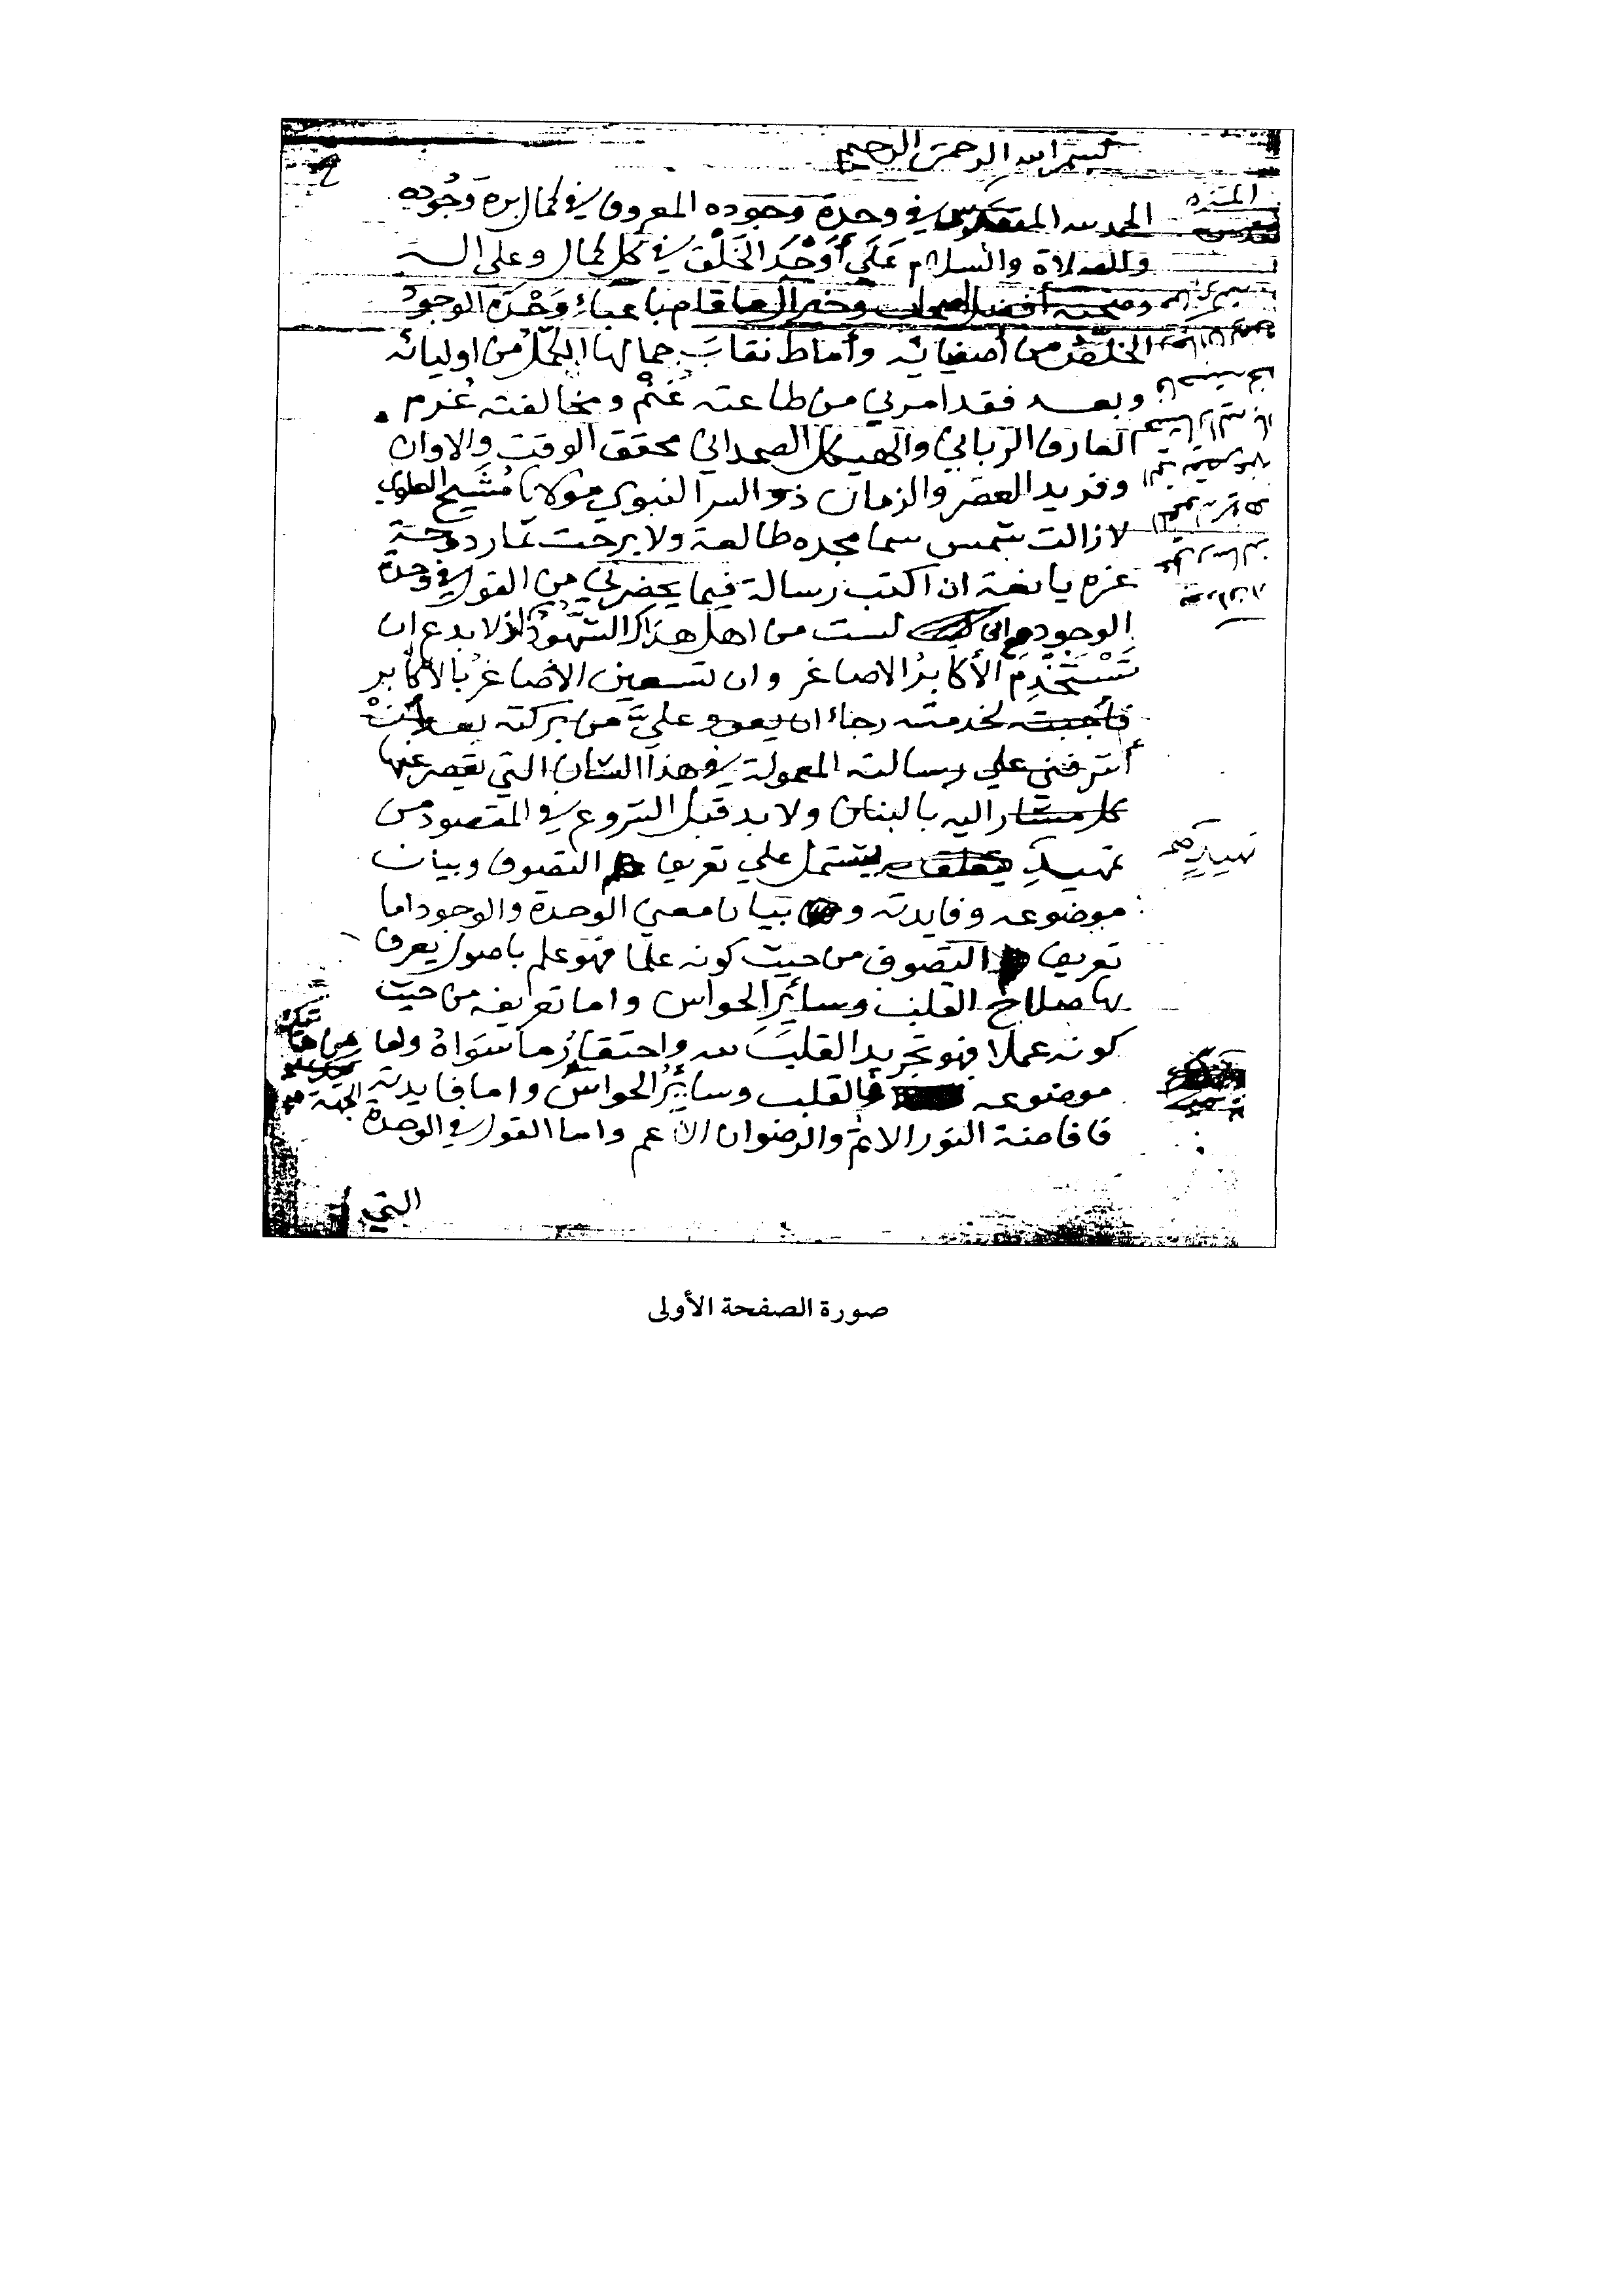 بسم الله الرحمن الرحيم
الحمد لله المتقدس في وحدة وجوده المعروف في كمال برة وَجُوده
المنزه
وللصلاة والسلام عَلَي أَوْحَد الخَلْق في كل كمال وعلى اله
وصحبه أفضل وخير ال ما قام باعباء وَحْدَة الوجود
الخلّصُ من أصفيائه وأماط نقابَ جمالها الكمّلُ من اوليائه
وبعد فقد امرني من طاعته غُنْم ومخالفته غُرم
العارف الرباني والهيكل الصمداني محقق الوقت والاوان
وفريد العصر والزمان ذو السر النبوي مولانا مُشَيخ العلوي
لا زالت شمس سما مجده طالعة ولا برحت ثمار دوحة
عزه يانعة ان اكتب رسالة فيما يحضرني من القول في وحدة
الوجود واني لست من اهل هذاك الشهود اذ لا بدع ان
تَسْتَخْدِمَ الأكابرُ الاصاغر وان تستعين الاصاغرُ بالاكابر
فأجبت لخدمته رجاء ان يعود عليَّ من بركته بعد أنْ
أشرفني علي رسالته المعمولة في هذا الشان التي يقصر عنها
كل مشار اليه بالبنان ولا بد قبل الشروع في المقصود من
تمهيدٍ يشتمل علي تعريف التصوف وبيان
تمهيدٍ صح
موضوعه وفايدته و بيان معني الوحدة والوجود اما
تعريف التصوف من حيث كونه علما فهو علم باصول يعرف
بها صلاح القلب وسائِرِ الحواس واما تعريفه من حيث
كونه عملا فهو تجريد القلبَ لله واحتقارُ ما سَوَاهُ واما
موضوعه فالقلب وسايرُ الحواس واما فايدته
فافاضة النور الاتم والرضوان الاعم واما القول في الوحدة
التي
صورة الصفحة الأولى